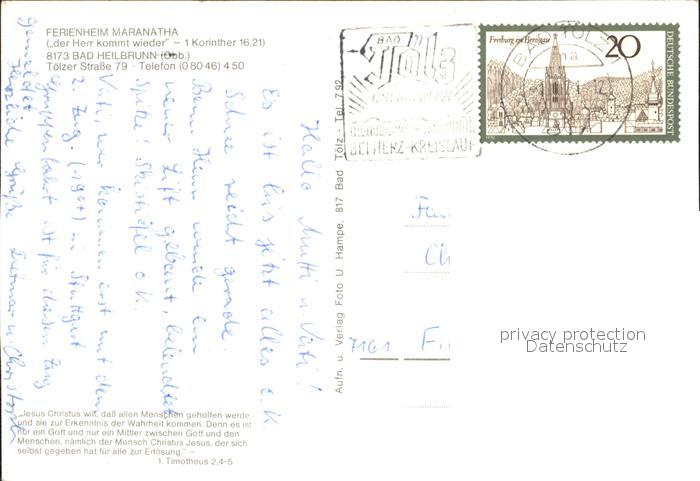 FERIENHEIM MARANATHA
(„der Herr kommt wieder" – 1 Korinther 16,21)
8173 BAD HEILBRUNN (Obb.)
Tölzer Straße 79 · Telefon (0 80 46) 4 50
Hallo Mutti u Vati!
Es ist bis jetzt alles o.k
Schnee reicht gerade.
Beim Haus wurde ein
neuer Lift gebaut, beleuchtet
Spitze! Skistiefel o.k.
Vati, wir kommen erst mit dem
2. Zug. (19) in Stuttgart
Gruppenfahrt ist für diesen Zug
gemeldet
Herzliche Grüße u Christoph
„Jesus Christus will, daß allen Menschen geholfen werde
und sie zur Erkenntnis der Wahrheit kommen. Denn es ist
nur ein Gott und nur ein Mittler zwischen Gott und den
Menschen, nämlich der Mensch Christus Jesus, der sich
selbst gegeben hat für alle zur Erlösung." –
1. Timotheus 2,4-5
Aufn. u. Verlag Foto U. Hampe, 817 Bad Tölz · Tel. 7 92
BAD
Tölz
BEI HERZ-KREISLAUF
BAD TÖLZ
ma
Freiburg im Breisgau
20
DEUTSCHE BUNDESPOST
Fam
Ch
7161 F
privacy protection
Datenschutz